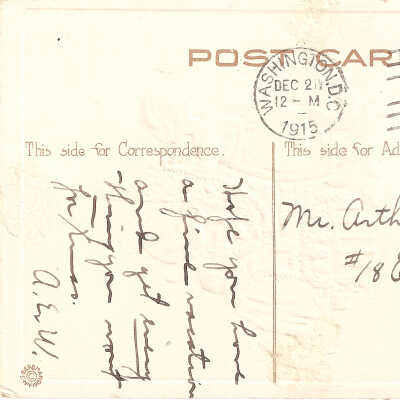 POST CAR
WASHINGTON, D.C.
DEC 2
12 - M
1915
This side for Correspondence.
This side for Ad
Hope you have
a fine vacation
and get every
-thing you want
for Xmas.
A. E. W.
Mr. Arth
#18 E